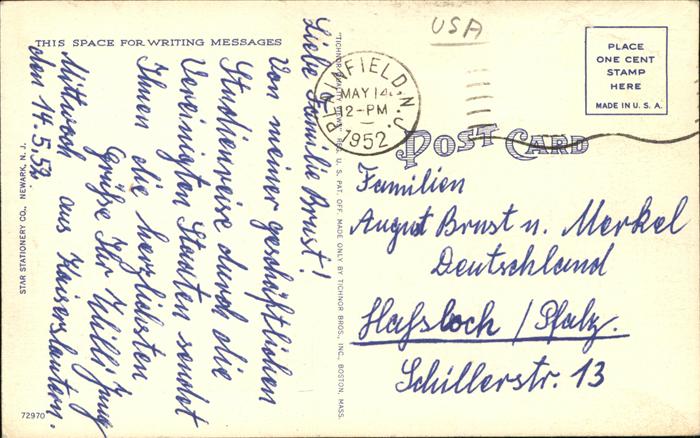 THIS SPACE FOR WRITING MESSAGES
Mittwoch
den 14.5.52.
Liebe Familie Brust!
Von meiner geschäftlichen
Studienreise durch die
Vereinigten Staaten sendet
Ihnen die herzlichsten
Grüße Ihr Willi Jung
aus Kaiserslautern.
STAR STATIONERY CO., NEWARK, N. J.
72970
"TICHNOR QUALITY VIEWS" REG. U. S. PAT. OFF. MADE ONLY BY TICHNOR BROS., INC., BOSTON, MASS.
USA
PLAINFIELD, N.J.
MAY 14
12-PM
1952
PLACE
ONE CENT
STAMP
HERE
MADE IN U. S. A.
POST CARD
Familien
August Brust u. Merkel
Deutschland
Hassloch / Pfalz.
Schillerstr. 13